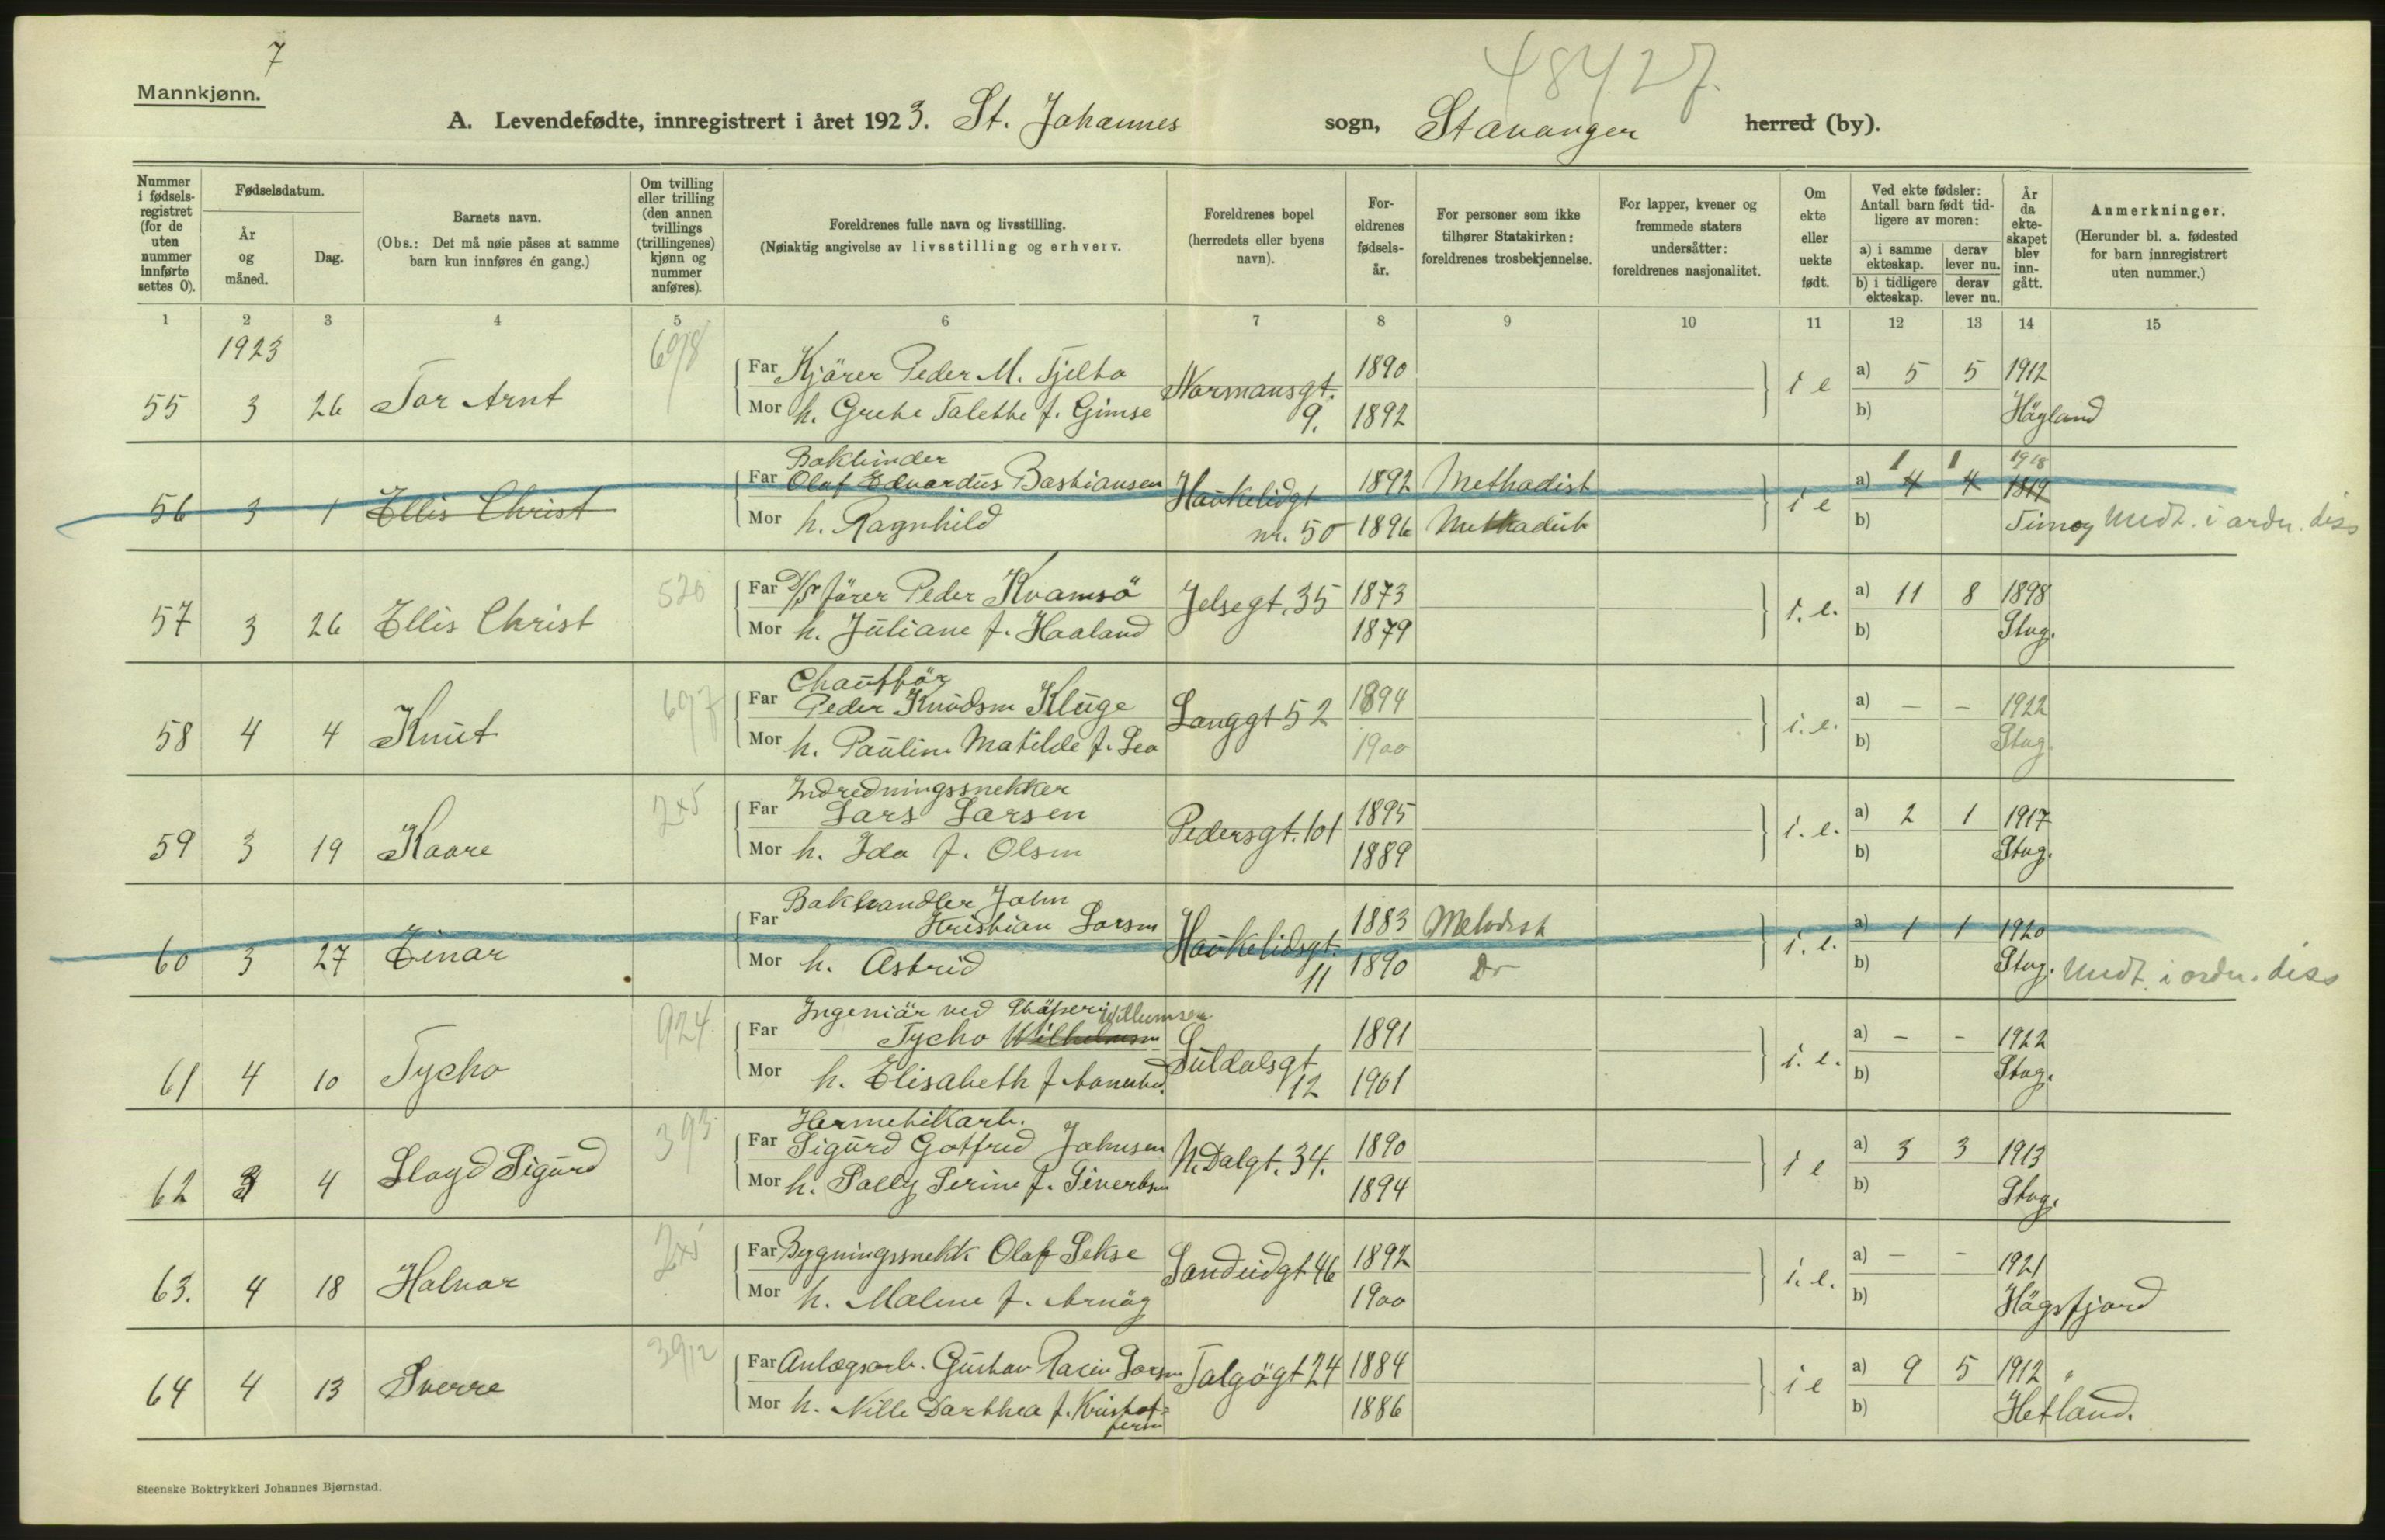 7
48427.
Mannkjønn.
A. Levendefødte, innregistrert i året 1923. St. Johannes sogn, Stavanger herred (by).
Nummer i fødselsregistret (for de uten nummer innførte settes 0).
Fødselsdatum.
År og måned.
Dag.
Barnets navn.
(Obs.: Det må nøie påses at samme barn kun innføres én gang.)
Om tvilling eller trilling (den annen tvillings (trillingenes) kjønn og nummer anføres).
Foreldrenes fulle navn og livsstilling.
(Nøiaktig angivelse av livsstilling og erhverv.
Foreldrenes bopel (herredets eller byens navn).
Foreldrenes fødselsår.
For personer som ikke tilhører Statskirken: foreldrenes trosbekjennelse.
For lapper, kvener og fremmede staters undersåtter: foreldrenes nasjonalitet.
Om ekte eller uekte født.
Ved ekte fødsler: Antall barn født tidligere av moren:
a) i samme ekteskap.
derav lever nu.
b) i tidligere ekteskap.
derav lever nu.
År da ekteskapet blev inngått.
Anmerkninger.
(Herunder bl. a. fødested for barn innregistrert uten nummer.)
1 2 3 4 5 6 7 8 9 10 11 12 13 14 15
1923
698
Far Kjörer Peder M. Tjelta 1890 a) 5 5 1912
55 3 26 Tor Arnt Normansgt. 9. i e
Mor h. Grethe Talette f. Gimse 1892 b) Högland
Bokbinder 1 1 1918
Far Olaf Edvardus Bastiansen 1892 Methodist a) 4 4 1819
56 3 1 Ellis Christ Haukelidgt nr. 50 i e
Mor h. Ragnhild 1896 Methodist b) Timoy Medt. i ordn. diss
520
Far D/S förer Peder Kvamsö 1873 a) 11 8 1898
57 3 26 Ellis Christ Jelsegt. 35 i. e.
Mor h. Juliane f. Haaland 1879 b) Stvg.
697
Chaufför
Far Peder Knudsen Kluge 1894 a) - - 1922
58 4 4 Knut Langgt 52 i. e.
Mor h. Pauline Matilde f. Lea 1900 b) Stvg.
2x5
Indredningssnekker
Far Lars Larsen 1895 a) 2 1 1917
59 3 19 Kaare Pedersgt. 101 i. e.
Mor h. Ida f. Olsen 1889 b) Stvg.
Bokhandler John
Far Kristian Larsen 1883 Metodist a) 1 1 1920
60 3 27 Einar Haukelidsgt. 11 i. e.
Mor h. Astrid 1890 Do b) Stvg. Medt. i ordn. diss
924
Ingeniör ved Willumsen
Far Tycho Wilhelmsen 1891 a) - - 1922
61 4 10 Tycho Suldalsgt 12 i. e.
Mor h. Elisabeth f. 1901 b) Stvg.
393
Hermetikarb.
Far Sigurd Gotfred Johnsen 1890 a) 3 3 1913
62 3 4 Lloyd Sigurd N. Dalgt. 34. i e
Mor h. Sally Serine f. Sivertsen 1894 b) Stvg.
2x5
Far Bygningssnekk Olaf Sekse 1892 a) - - 1921
63. 4 18 Halvar Sandeidgt 46 i. e.
Mor h. Malene f. Arnög 1900 b) Högsfjord
3912
Far Anlægsarb. Gustav Larsen 1884 a) 9 5 1912 "
64 4 13 Sverre Talgögt 24 i e
Mor h. Nille Dorthea f. Kristoffersen 1886 b) Hetland.
Steenske Boktrykkeri Johannes Bjørnstad.